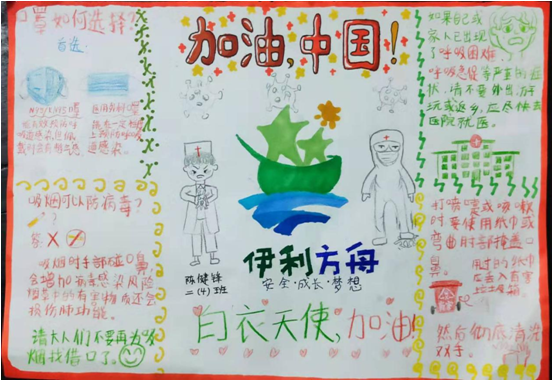 加油,中国!
口罩如何选择?
首选:
N95/KN95口罩
医用外科口罩
吸烟可以防病毒?
答:
吸烟时手部碰口鼻,
会增加病毒感染风险
烟草中的有害物质还会
损伤肺功能。
请大人们不要再为吸
烟找借口了。
陈健锋
二(4)班
伊利方舟
安全·成长·梦想
白衣天使,加油!
如果自己或
家人已出现
了呼吸困难、
呼吸急促等严重的症
状,请不要外出游
玩或返乡,应尽快去
医院就医。
打喷嚏或咳嗽
时要使用纸巾或
弯曲肘部掩盖口
鼻。用过的纸巾
丢入有害
垃圾箱。
然后彻底清洗
双手。